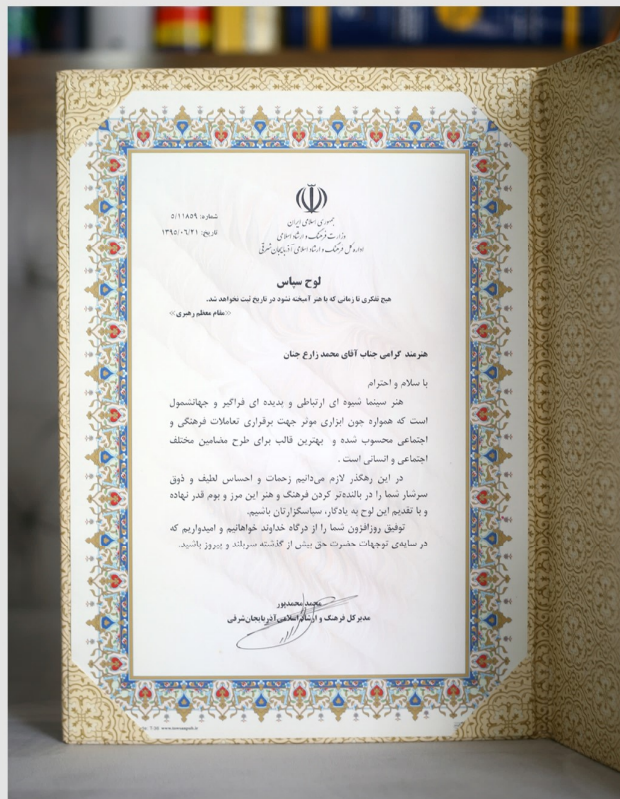 جمهوری اسلامی ایران
وزارت فرهنگ و ارشاد اسلامی
اداره کل فرهنگ و ارشاد اسلامی آذربایجان شرقی
شماره: ۵/۱۱۸۵۹
تاریخ: ۱۳۹۵/۰۶/۲۱
لوح سپاس
هیچ تفکری تا زمانی که با هنر آمیخته نشود در تاریخ ثبت نخواهد شد.
«مقام معظم رهبری»
هنرمند گرامی جناب آقای محمد زارع جنان
با سلام و احترام
هنر سینما شیوه ای ارتباطی و پدیده ای فراگیر و جهانشمول
است که همواره چون ابزاری موثر جهت برقراری تعاملات فرهنگی و
اجتماعی محسوب شده و بهترین قالب برای طرح مضامین مختلف
اجتماعی و انسانی است .
در این رهگذر لازم می‌دانیم زحمات و احساس لطیف و ذوق
سرشار شما را در بالنده‌تر کردن فرهنگ و هنر این مرز و بوم قدر نهاده
و با تقدیم این لوح به یادگار، سپاسگزارتان باشیم.
توفیق روزافزون شما را از درگاه خداوند خواهانیم و امیدواریم که
در سایه‌ی توجهات حضرت حق بیش از گذشته سربلند و پیروز باشید.
محمد محمدپور
مدیرکل فرهنگ و ارشاد اسلامی آذربایجان‌شرقی